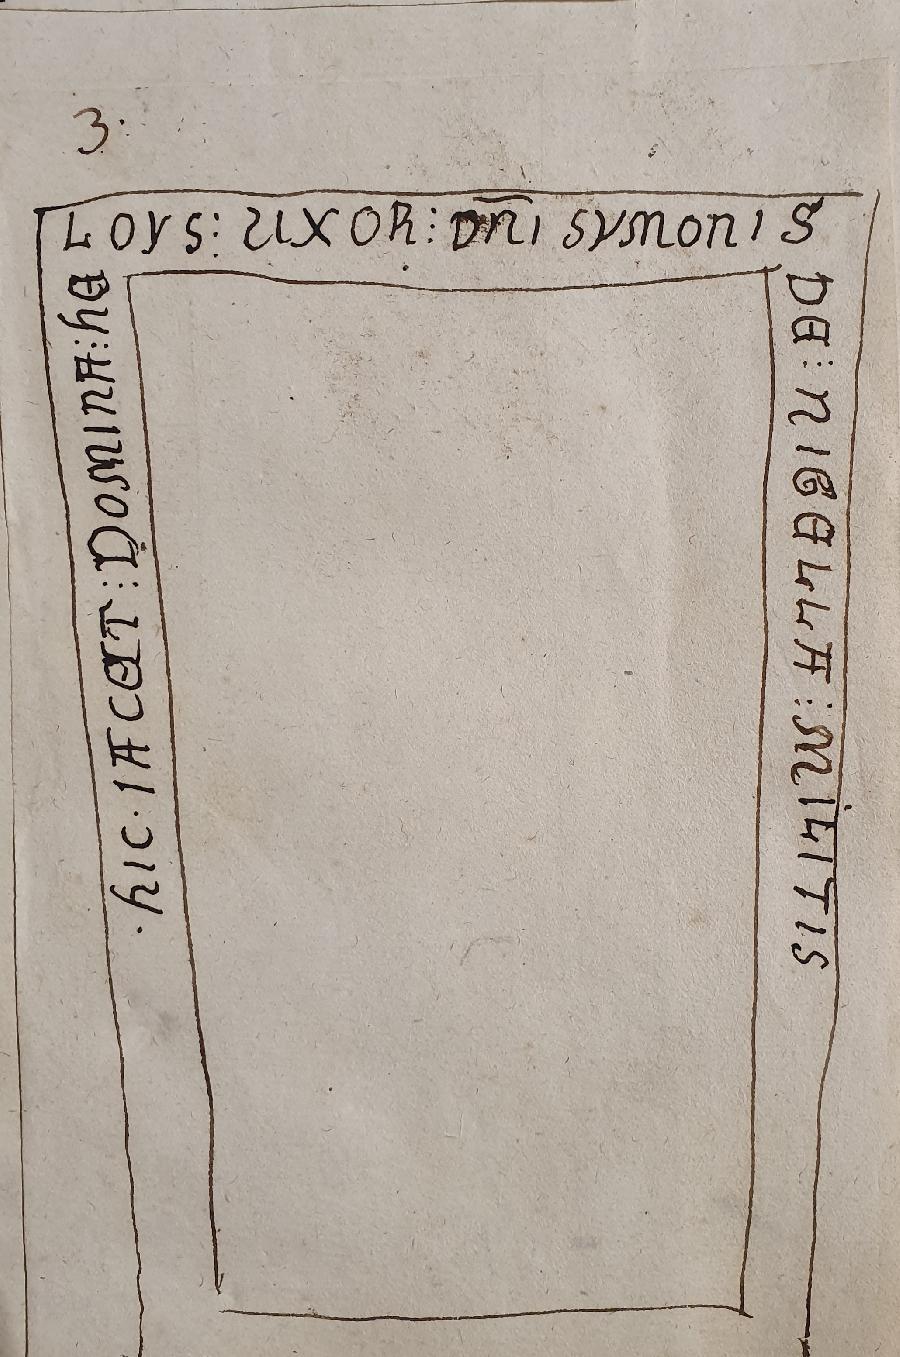 3.
·hIC·IACET:DOMINA:hE
LOYS:UXOR:Dn̄I SYMONIS
DE:NIGELLA:MILITIS